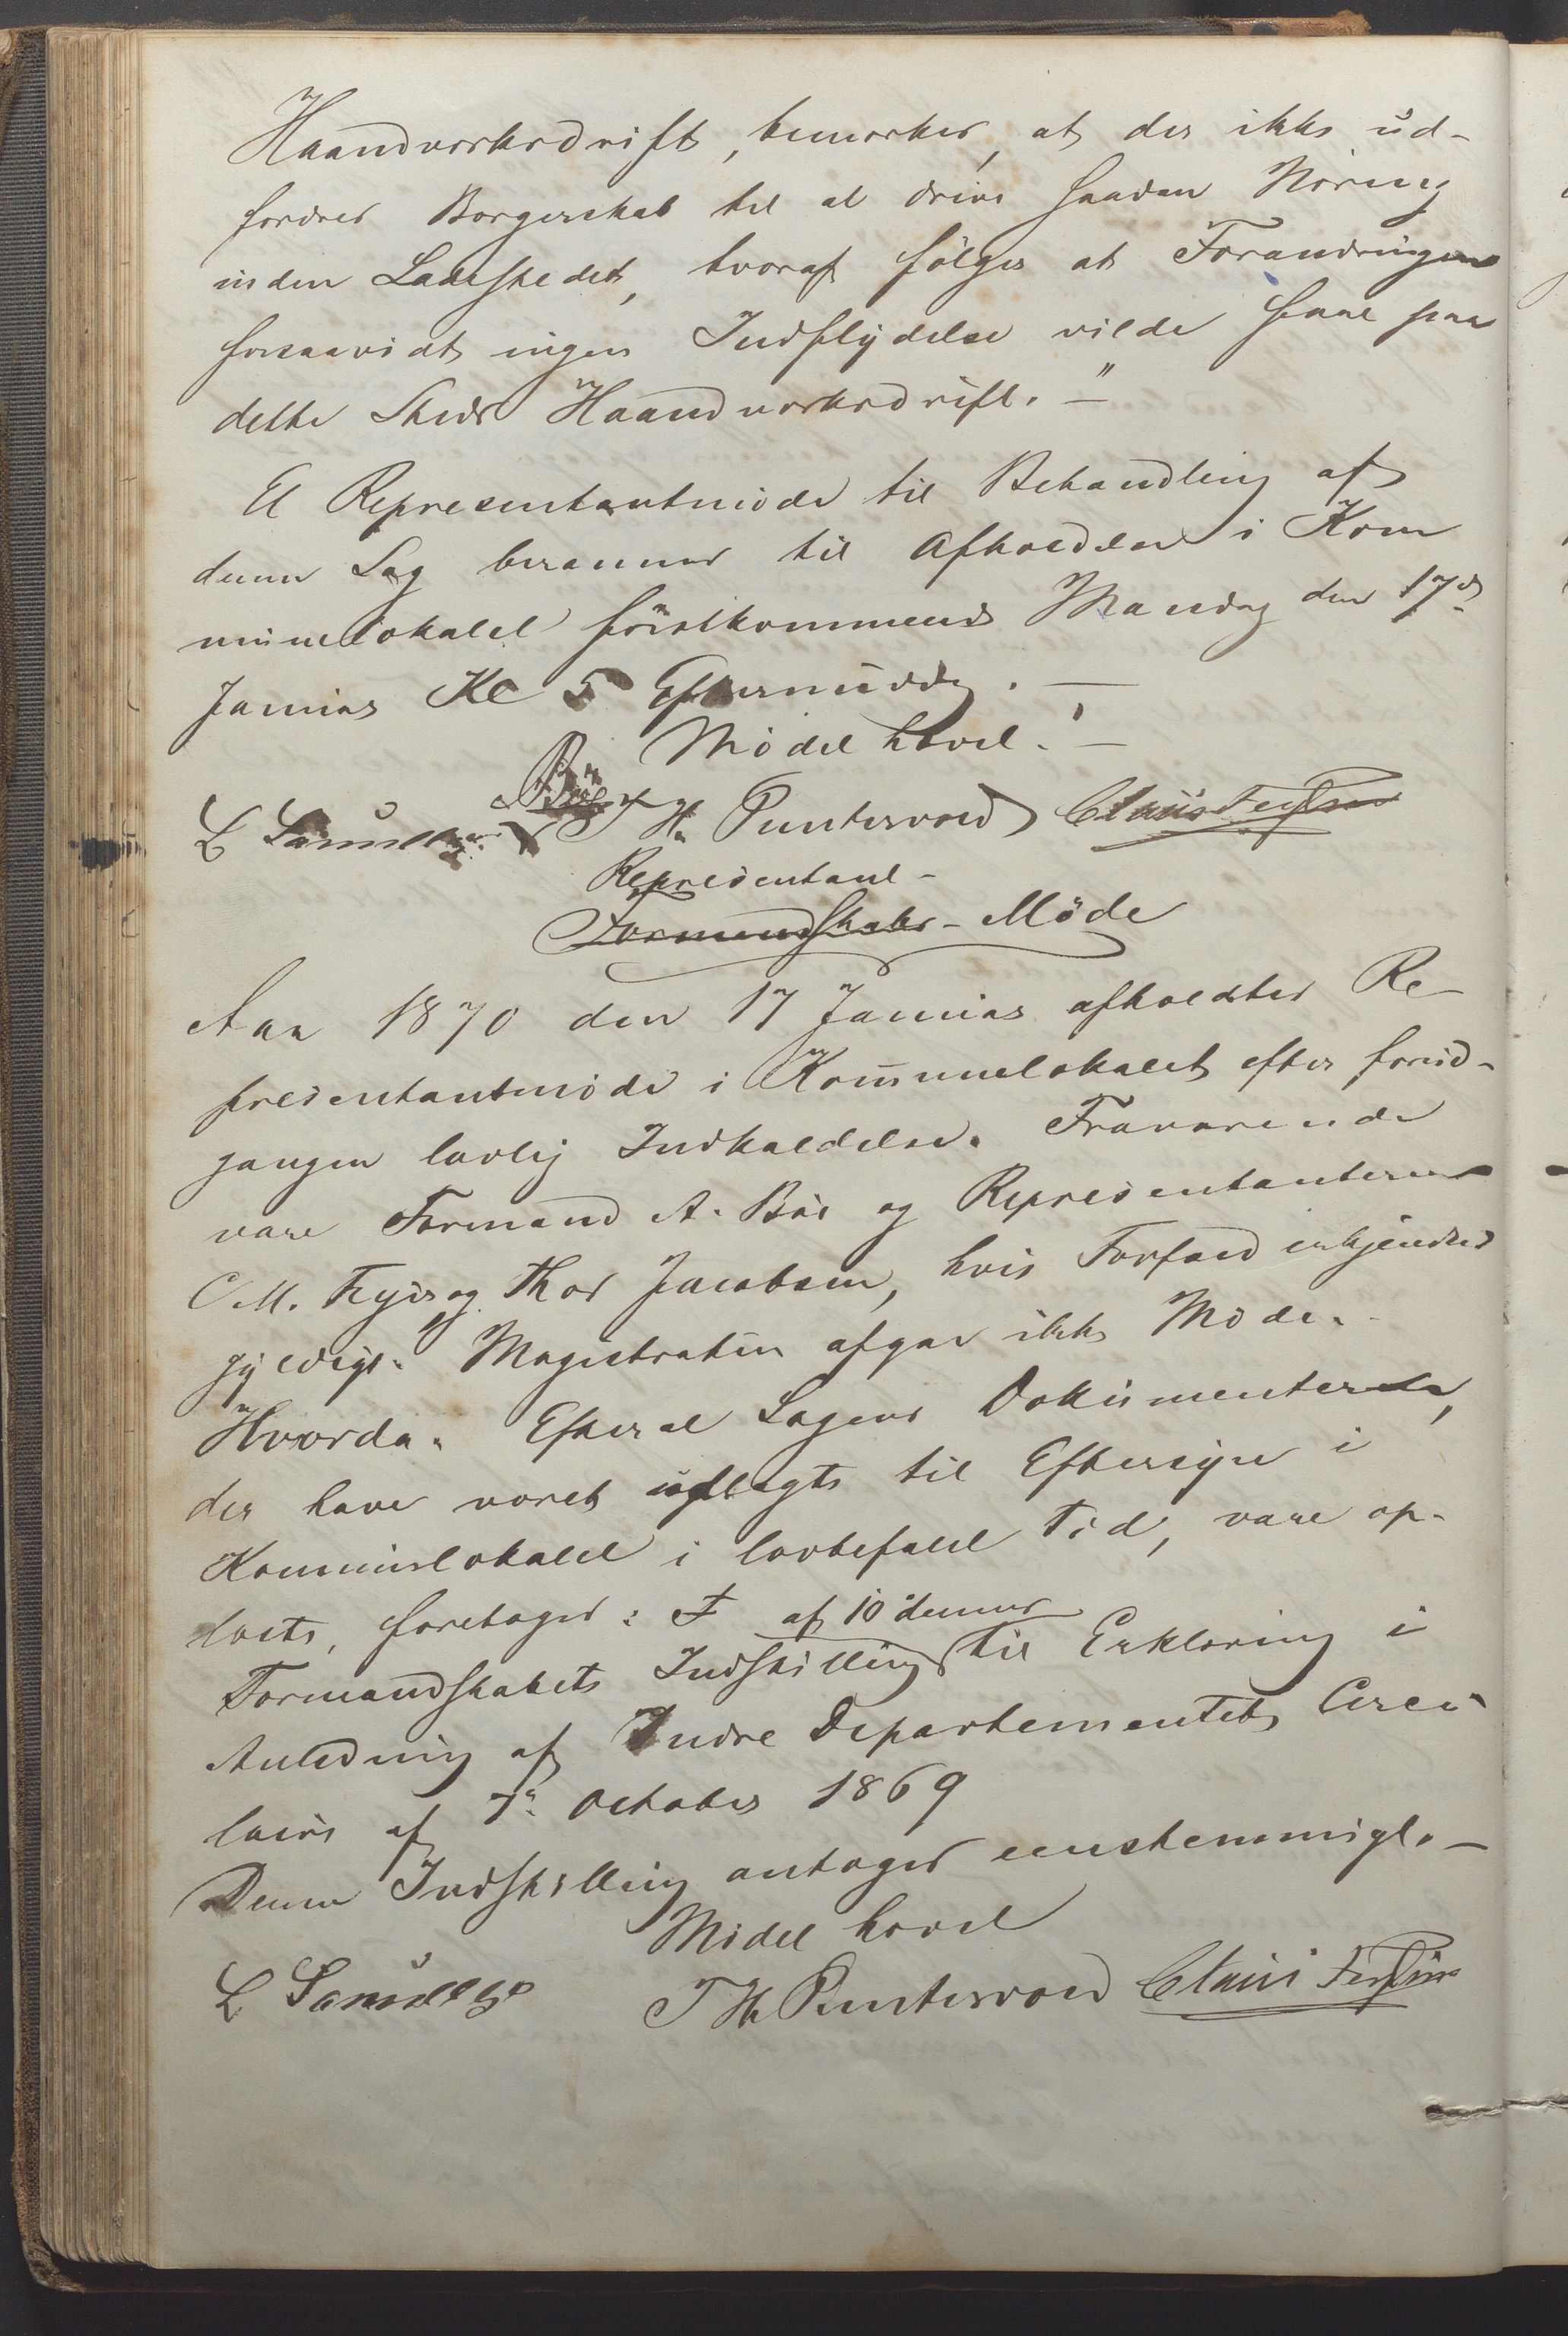 Haandverksdrift, bemærkes, at der ikke ud-
fordres Borgerskab til at drive saadan Næring
inden Ladestedet, hvoraf følger at Forandringen
forsaavidt ingen Indflydelse vilde faae paa
dette Steds Haandverksdrift. –"
Et Representantmøde til Behandling af
denne Sag berammes til Afholdelse i Kom
munelokalet førstkommende Mandag den 17de
Januar Kl 5 Eftermiddag. —
Mødet hævet. –
Bøe T H. Puntervold Claus
Representant-
Formandskabs-Møde
Aar 1870 den 17 Januar afholdtes Re-
presentantmøde i Kommunelokalet efter forud-
gangen lovlig Indkaldelse. Fraværende
vare Formand A. Bøe og Representanterne
C M. og Thor Jacobsen, hvis Forfald erkjendtes
gyldigt. Magistraten afgav ikke Møde.
Hvorda. Efterat Sagens Dokumenter,
der have været udlagte til Eftersyn i
Kommunelokalet i lovbefalet Tid, vare op-
læste, foretoges:
af 10 dennes
Formandskabets Indstilling til Erklæring i
Anledning af Indre Departementets Circu
laire af 7de October 1869
Denne Indstilling antoges eenstemmigt. –
Mødet hævet
L T H Puntervold Claus